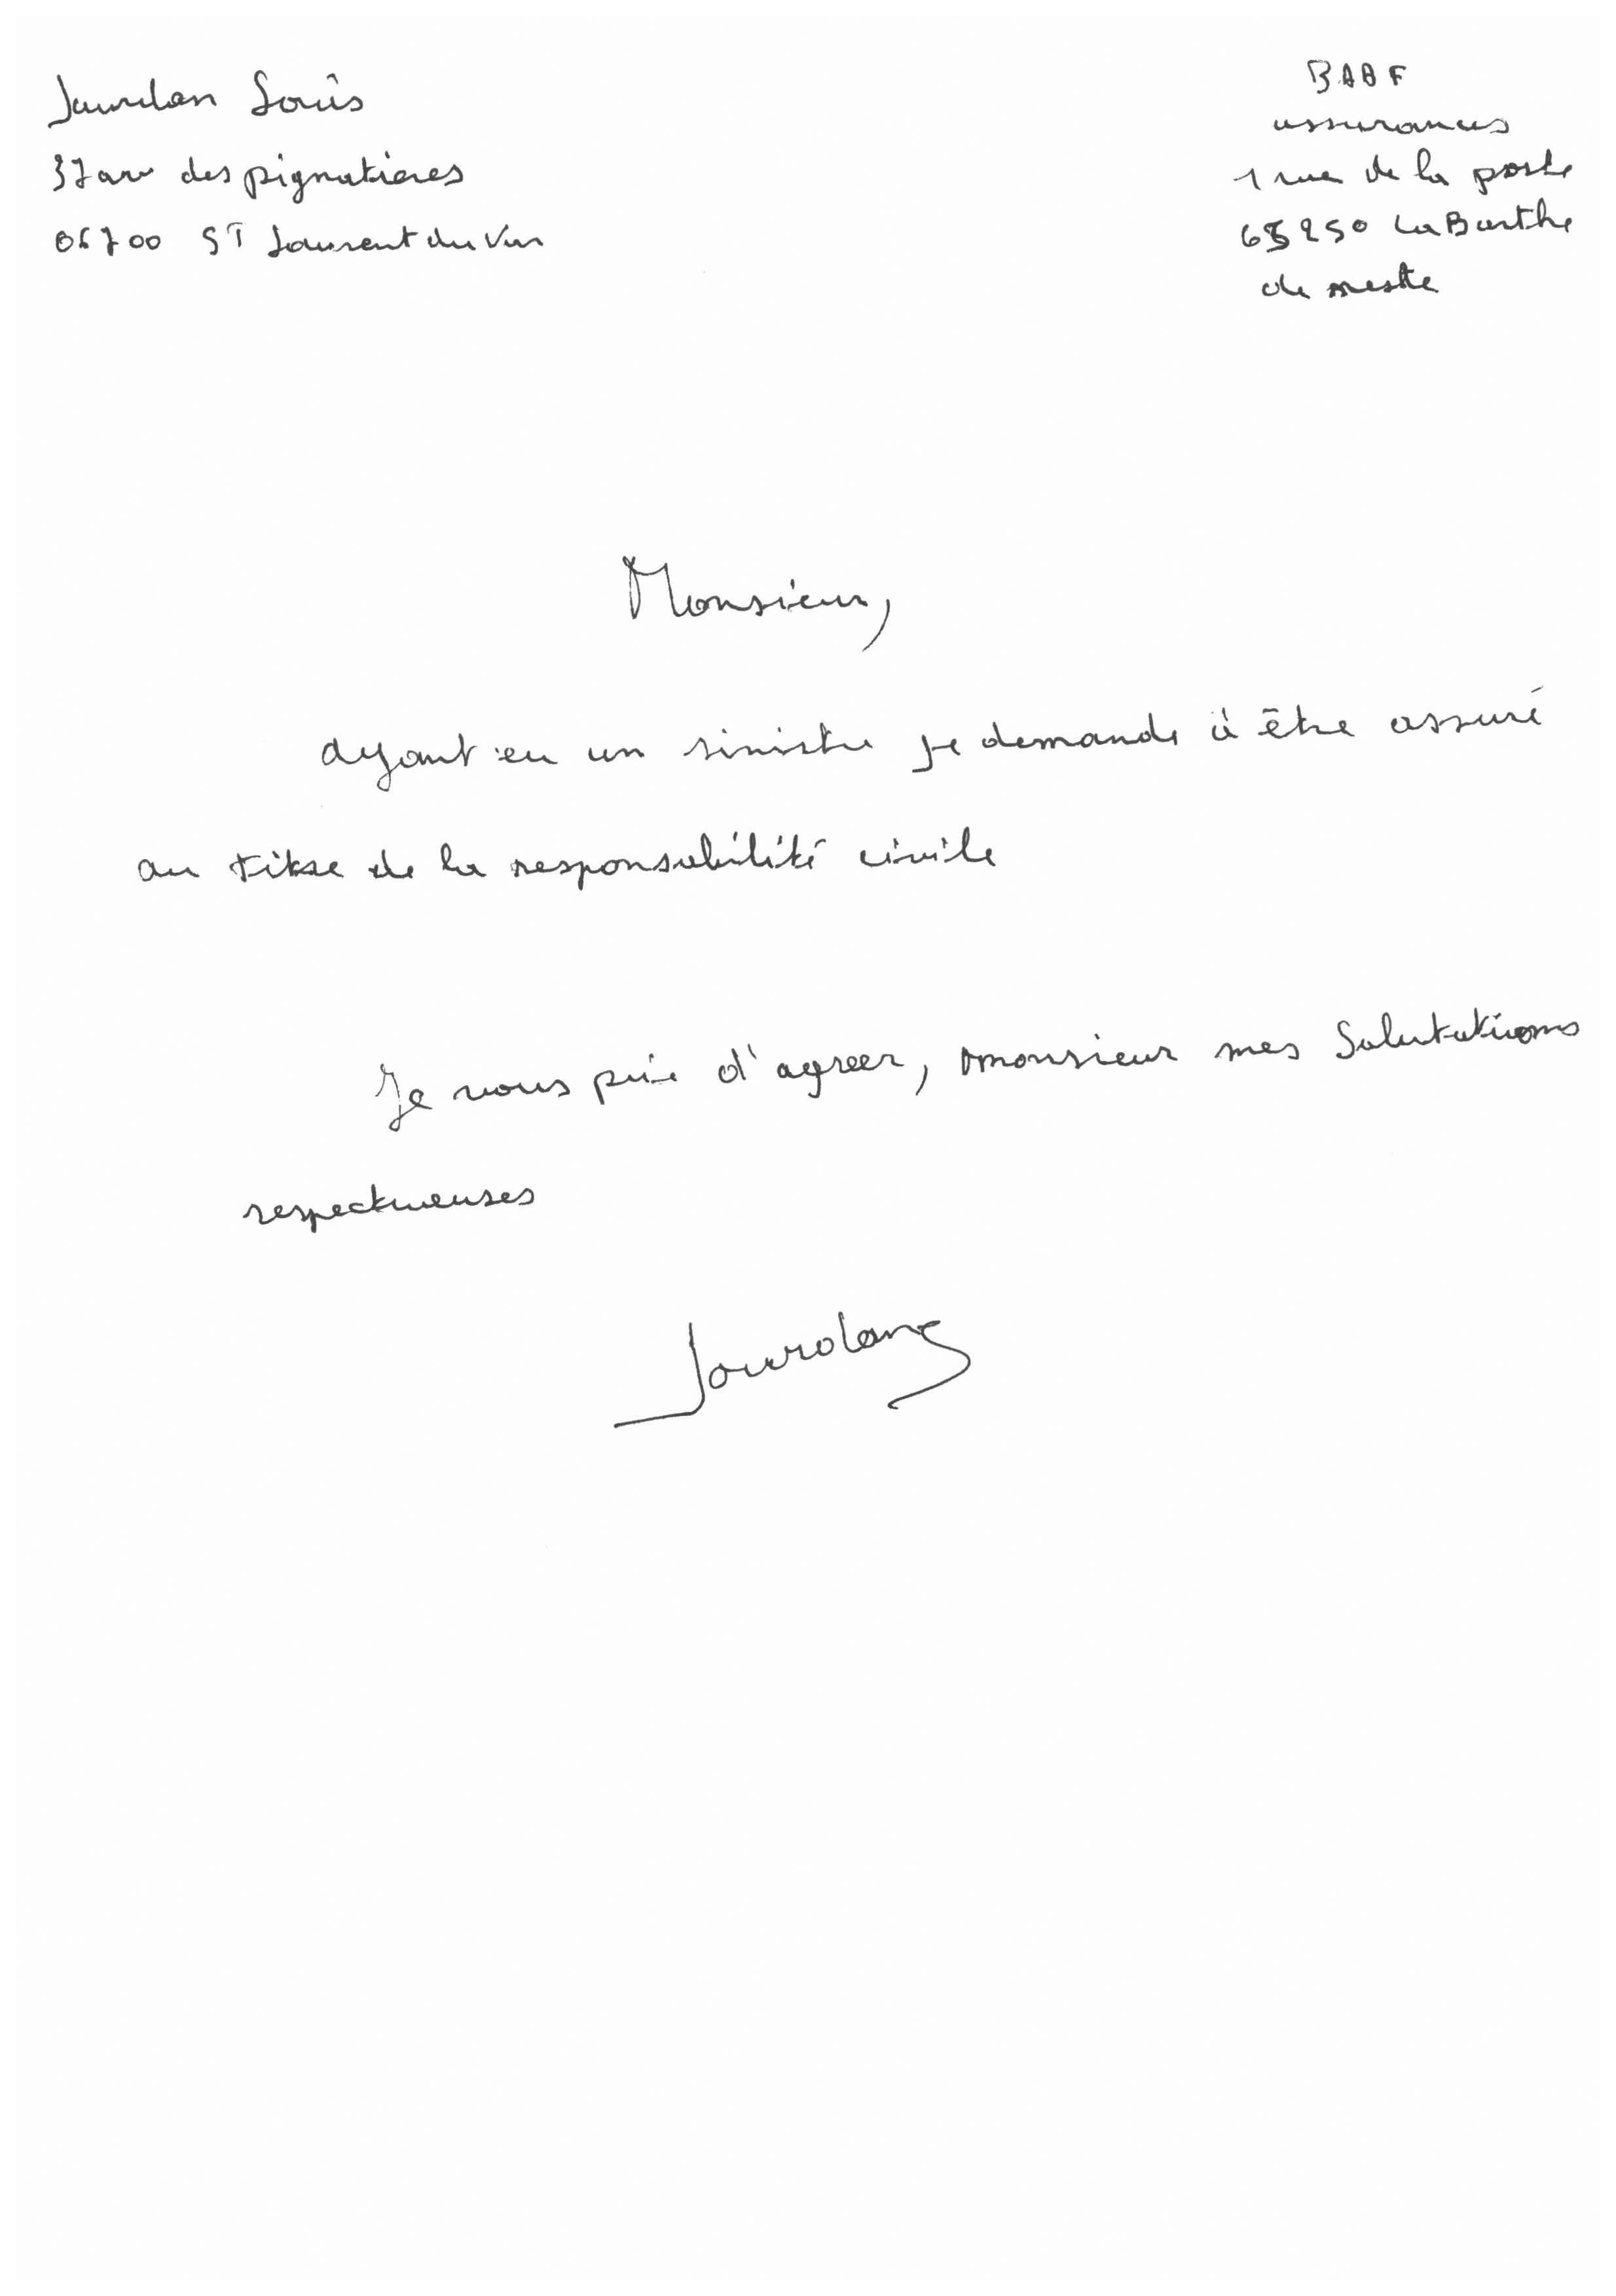 Jourdan Louis
37 av des pignatières
06700 ST Laurent du Var
BAAF
assurances
1 rue de la poste
65250 La Barthe
de neste
Monsieur,
ayant eu un sinistre je demande à être assuré
au titre de la responsabilité civile
Je vous prie d'agreer, monsieur mes Salutations
respectueuses
Jourdan